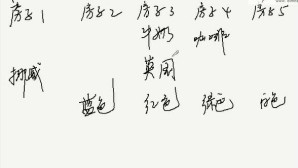 房子1 房子2 房子3 房子4 房子5
牛奶 咖啡
挪威 英国
蓝色 红色 绿色 白色